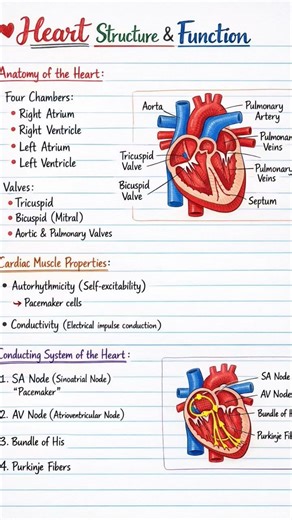 Heart Structure & Function
Anatomy of the Heart:
Four Chambers:
• Right Atrium
• Right Ventricle
• Left Atrium
• Left Ventricle
Valves:
• Tricuspid
• Bicuspid (Mitral)
• Aortic & Pulmonary Valves
Aorta
Tricuspid
Valve
Bicuspid
Valve
Pulmonary
Artery
Pulmonar
Veins
Pulmonary
Veins
Septum
Cardiac Muscle Properties:
• Autorhythmicity (Self-excitability)
→ Pacemaker cells
• Conductivity (Electrical impulse conduction)
Conducting System of the Heart:
1. SA Node (Sinoatrial Node)
"Pacemaker"
2. AV Node (Atrioventricular Node)
3. Bundle of His
4. Purkinje Fibers
SA Node
AV Node
Bundle of H
Purkinje Fi